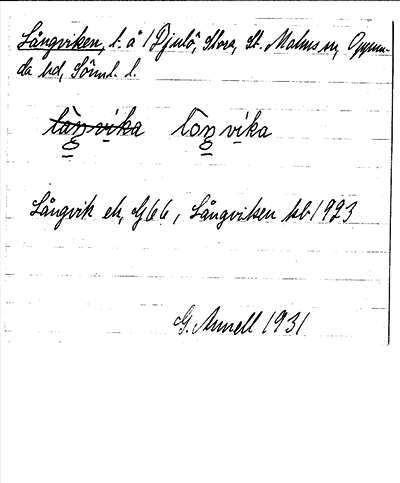 Långviken, t. å 1 Djulö, Stora, St. Malms sn, Oppun-
da hd, Sörml. l.
Långvik ek, G66, Långviken kb 1923
G. Annell 1931